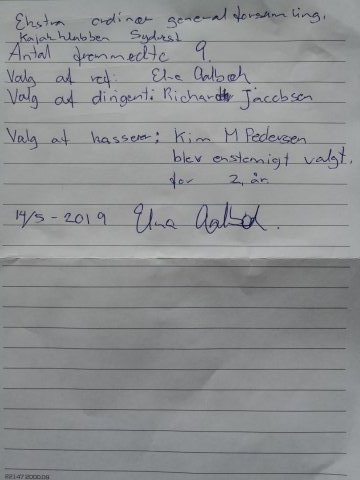 Ekstra ordinær generalforsamling.
Kajakklubben Sydvest
Antal fremmødte 9.
Valg af ref: Elna Aalbæk
Valg af dirigent: Richardt Jacobsen
Valg af kasserer: Kim M Pedersen
blev enstemigt valgt.
for 2, år.
14/5-2019 Elna Aalbæk.